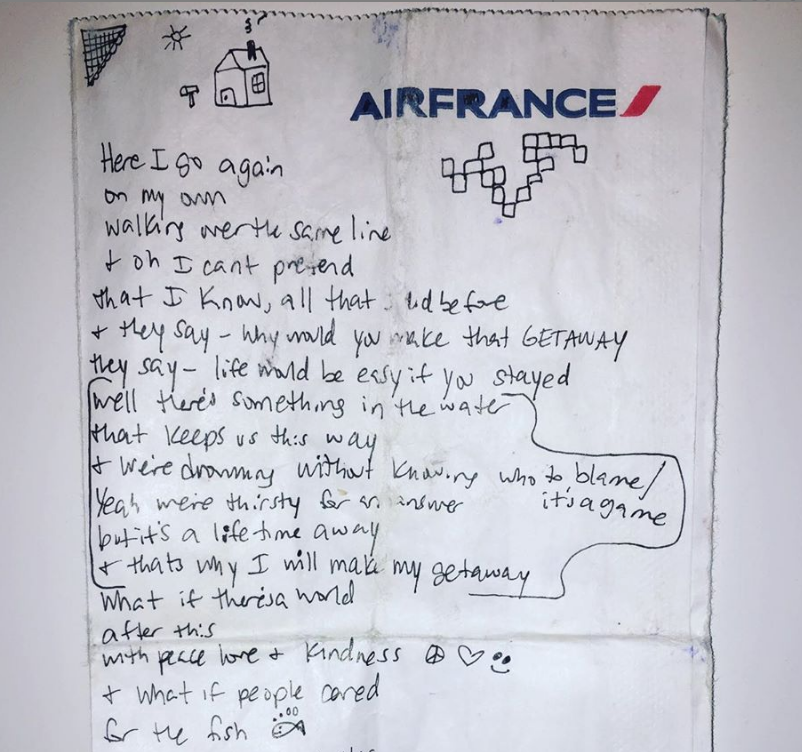 AIRFRANCE
Here I go again
on my own
walking over the same line
+ oh I cant pretend
that I know, all that before
+ they say - why would you make that GETAWAY
they say - life would be easy if you stayed
well there's something in the water
that keeps us this way
+ we're drowning without knowing who to blame/
it's a game
Yeah we're thirsty for an answer
but it's a lifetime away
+ thats why I will make my getaway
What if there's a world
after this
with peace love + kindness
+ what if people cared
for the fish